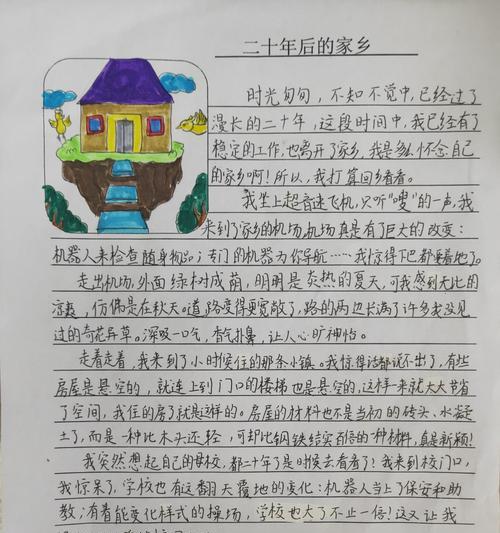 二十年后的家乡
时光匆匆，不知不觉中，已经过了
漫长的二十年，这段时间中，我已经有了
稳定的工作，也离开了家乡，我是多么怀念自己
的家乡啊！所以，我打算回乡看看。
我坐上超音速飞机，只听“嗖”的一声，我
来到了家乡的机场，机场真是有了巨大的改变：
机器人来检查随身物品；专门的机器为你导航……我惊得下巴都要着地了。
走出机场，外面绿树成荫，明明是炎热的夏天，可我感到无比的
凉爽，仿佛是在秋天。道路变得更宽敞了，路的两边长满了许多我没见
过的奇花异草。深吸一口气，香气扑鼻，让人心旷神怡。
走着走着，我来到了小时候住的那条小镇。我惊得话都说不出了，有些
房屋是悬空的，就连上到门口的楼梯也是悬空的，这样一来就大大节省
了空间，我住的房子就是这样的。房屋的材料也不是当初的砖头、水泥
土了，而是一种比木头还轻，可却比钢铁结实百倍的一种材料，真是新颖！
我突然想起自己的母校，都二十年了是时候去看看了！我来到校门口，
我惊呆了，学校也有这翻天覆地的变化：机器人当上了保安和助
教；有着能变化样式的操场，学校也大了不止一倍！这又让我